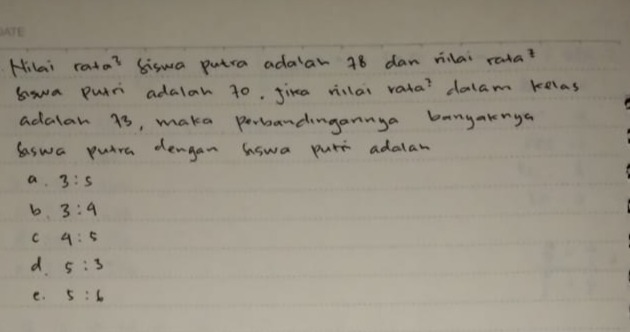 DATE
Nilai rata² siswa putra adalah 78 dan nilai rata²
siswa putri adalah 70. jika nilai rata² dalam kelas
adalah 73, maka perbandingannya banyaknya
siswa putra dengan siswa putri adalah
a. 3:5
b. 3:4
c 4:5
d. 5:3
e. 5:6